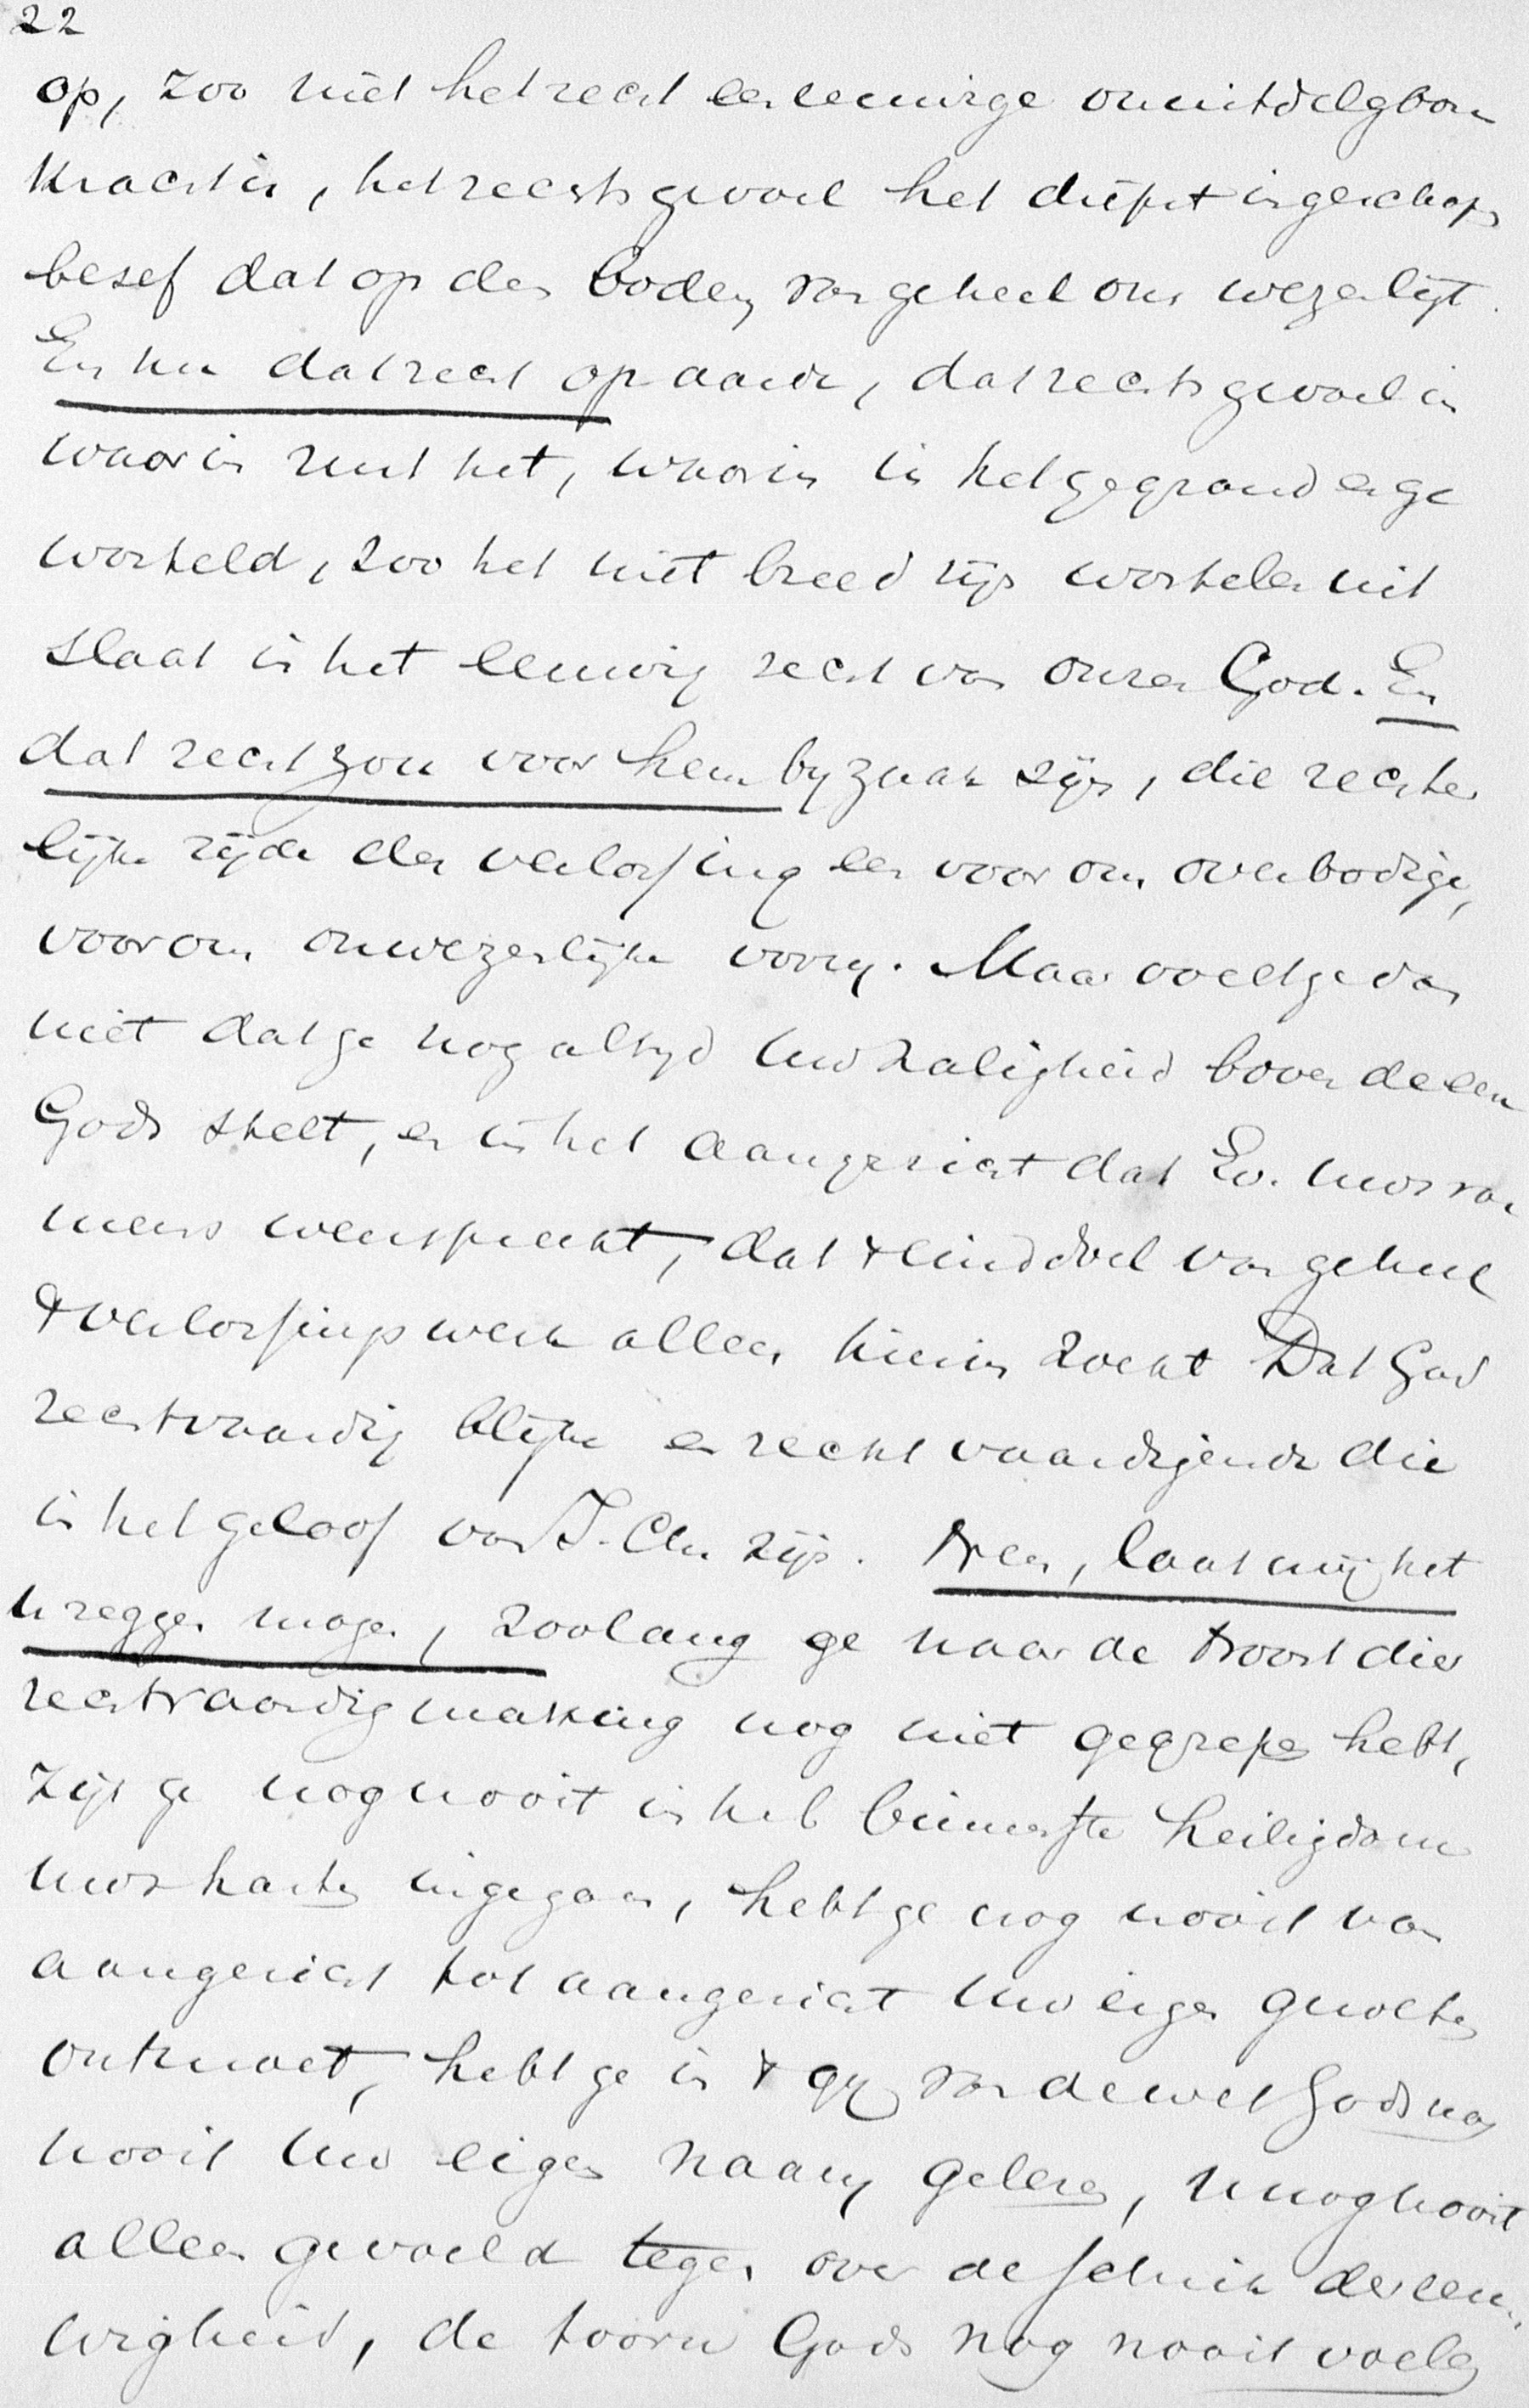 22
op, zoo niet het recht een eeuwige onuitdelgbare
kracht is, het rechtsgevoel het diepst ingeschapen
besef dat op den bodem van geheel ons wezen ligt.
En nu dat recht op aarde, dat rechtsgevoel in
waarin rust het, waarin is het gegrond en ge
worteld, zoo het niet breed zijn wortelen uit
slaat in het eeuwig recht van onzen God. En
dat recht zou voor hem byzaak zijn, die rechte
lijke zijde der verlossing een voor ons overbodige,
voor ons onwezenlijke vorm. Maar voelt ge dan
niet dat ge nog altyd uw zaligheid boven de eer
Gods stelt, en in het aangezicht dat Ev. uws von
weerspreekt, dat 't einddoel van geheel
't verlossingswerk alleen hierin zoekt Dat God
rechtvaardig blijke en rechtvaardigende die
in het geloof van J. Chr zijn. Neen, laat mij het
u zeggen mogen, zoolang ge naar de troost dier
rechtvaardigmaking nog niet gegrepen hebt,
zijt ge nog nooit in het binnenste heiligdom
uws harten ingegaan, hebt ge nog nooit van
aangezicht tot aangezicht uw eigen geweten
ontmoet, hebt ge in 't van de wet Gods nog
nooit uw eigen naam gelezen, u nog nooit
alleen gevoeld tegen over de schrik der eeu-
wigheid, de toorn Gods nog nooit voelen